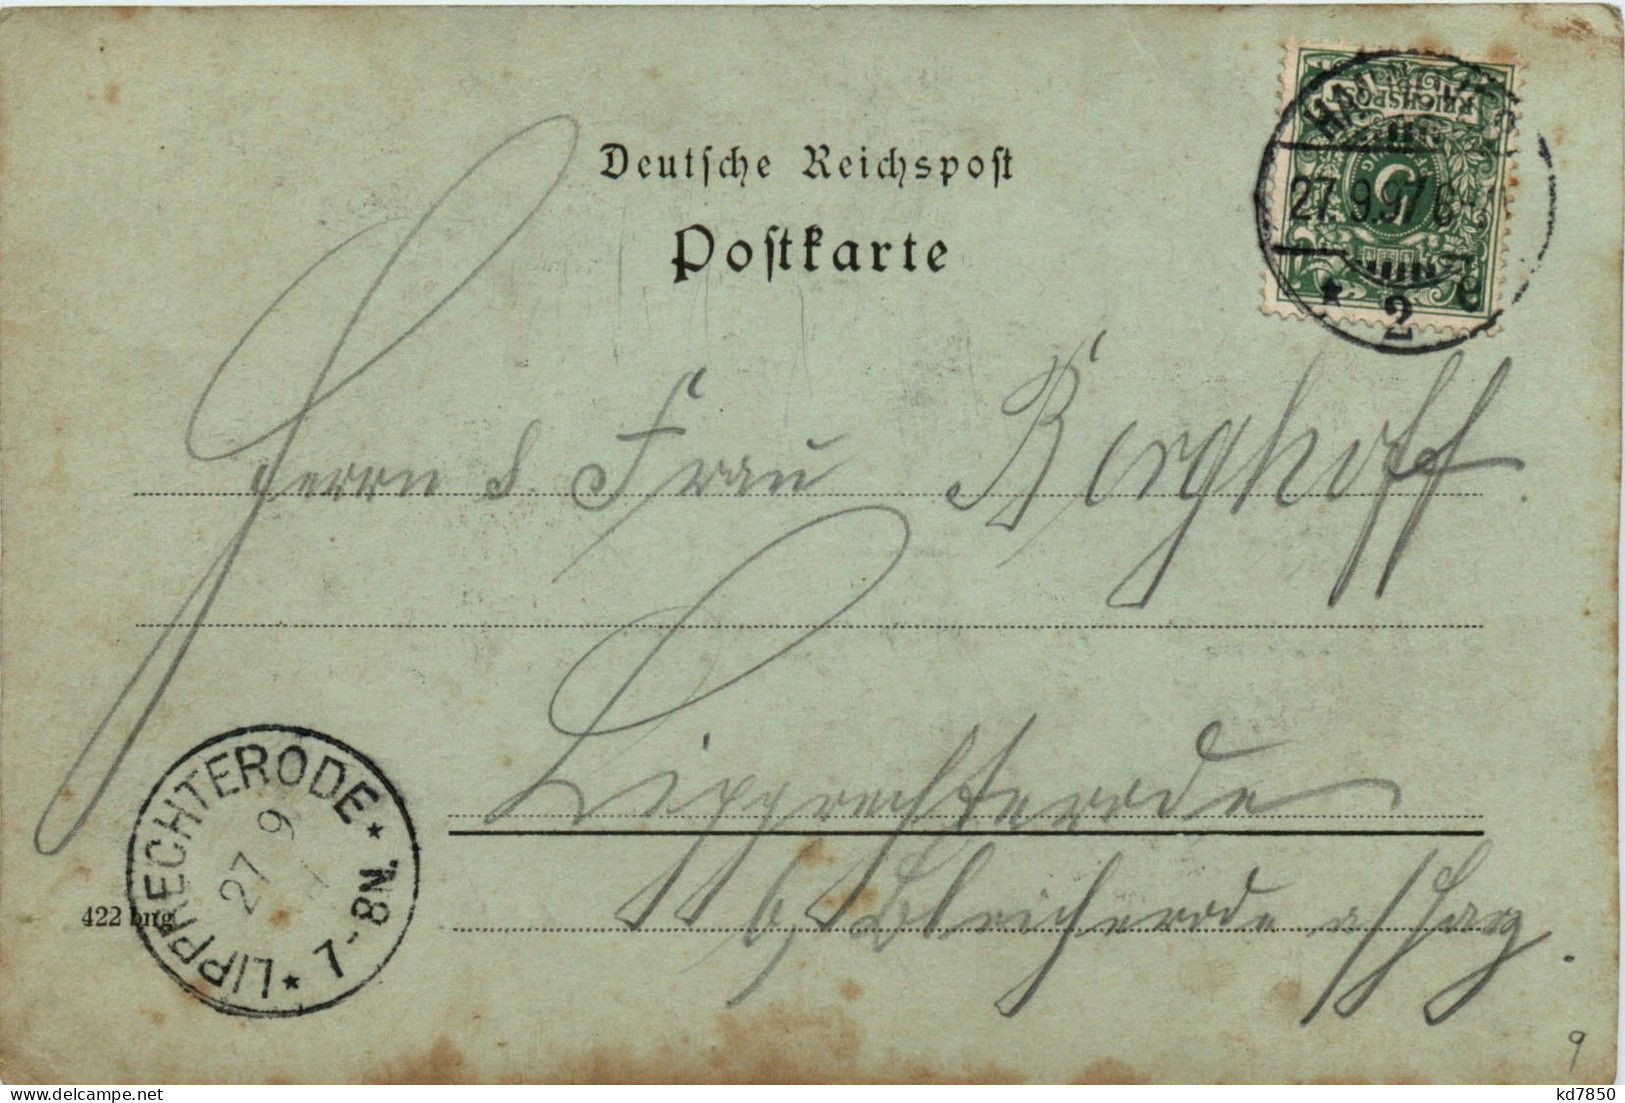 Deutsche Reichspost
Postkarte
REICHSPOST
5
27.9.97 6-
2
Herrn & Frau Berghoff.
Lipprechterode
b/ Bleicherode a/Harz.
LIPPRECHTERODE
27 9
7-8N.
422 bng
9
kd7850